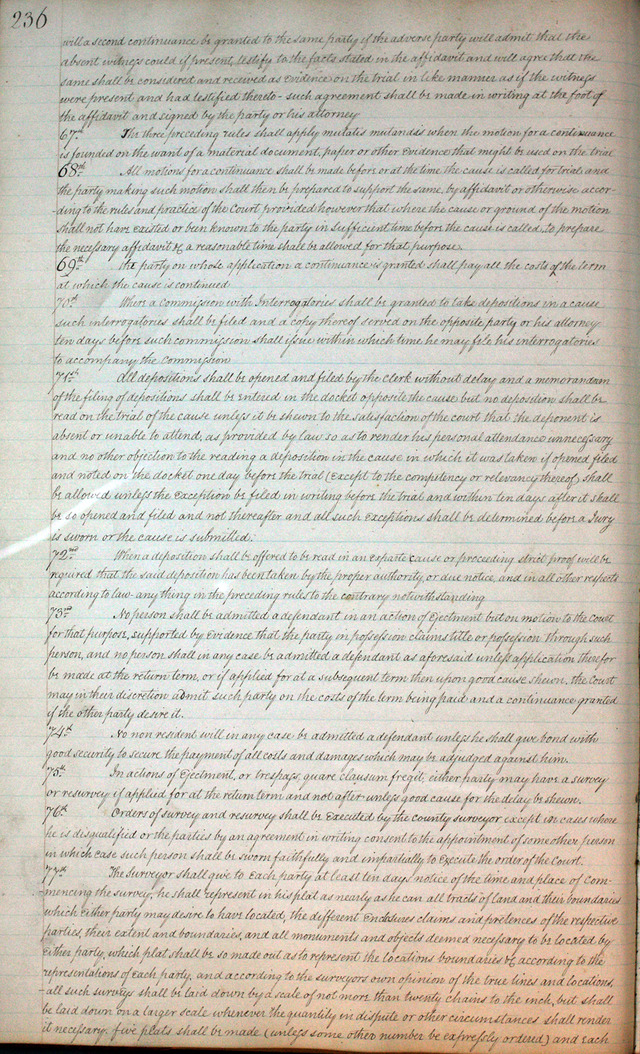 236
will a second continuance be granted to the same party if the adverse party will admit that the
absent witness could if present, testify to the facts stated in the affidavit and will agree that the
same shall be considered and received as Evidence on the trial in like manner as if the witness
were present and had testified thereto - such agreement shall be made in writing at the foot of
the affidavit and signed by the party or his attorney
67th The three preceding rules shall apply mutatis mutandis when the motion for a continuance
is founded on the want of a material document, paper or other Evidence that might be used on the trial
68th All motions for a continuance shall be made before or at the time the cause is called for trial and
the party making such motion shall then be prepared to support the same, by affidavit or otherwise accor-
-ding to the rules and practice of the Court provided however that where the cause or ground of the motion
shall not have Existed or been known to the party in sufficient time before the cause is called, to prepare
the necessary affidavit &c a reasonable time shall be allowed for that purpose.
69th the party on whose application a continuance is granted shall pay all the costs of the term
at which the cause is continued
70th When a commission with Interrogatories shall be granted to take depositions in a cause
such interrogatories shall be filed and a copy thereof served on the opposite party or his attorney
ten days before such commission shall issue within which time he may file his interrogatories
to accompany the Commission
71st All depositions shall be opened and filed by the clerk without delay and a memorandum
of the filing of depositions shall be Entered in the docket opposite the cause but no deposition shall be
read on the trial of the cause unless it be shewn to the satisfaction of the court that the deponent is
absent or unable to attend, as provided by law so as to render his personal attendance unnecessary
and no other objection to the reading a deposition in the cause in which it was taken if opened filed
and noted on the docket one day before the trial (Except to the competency or relevancy thereof) shall
be allowed unless the Exception be filed in writing before the trial and within ten days after it shall
be so opened and filed and not thereafter and all such Exceptions shall be determined before a Jury
is sworn or the cause is submitted.
72nd When a deposition shall be offered to be read in an exparte cause or proceeding strict proof will be
required that the said deposition has been taken by the proper authority, or due notice, and in all other respects
according to law - any thing in the preceding rules to the contrary notwithstanding
73rd No person shall be admitted a defendant in an action of Ejectment but on motion to the Court
for that purpose, supported by Evidence that the party in possession claims title or possession through such
person, and no person shall in any case be admitted a defendant as aforesaid unless application therefor
be made at the return term, or if applied for at a subsequent term then upon good cause shewn, the Court
may in their discretion admit such party on the costs of the term being paid and a continuance granted
if the other party desire it.
74th No non resident will in any case be admitted a defendant unless he shall give bond with
good security to secure the payment of all costs and damages which may be adjudged against him.
75th In actions of Ejectment, or trespass, quare clausum fregit, either party may have a survey
or resurvey if applied for at the return term and not after unless good cause for the delay be shewn.
76th Orders of survey and resurvey shall be Executed by the county surveyor except in cases where
he is disqualified or the parties by an agreement in writing consent to the appointment of some other person
in which case such person shall be sworn faithfully and impartially to Execute the order of the Court.
77th The Surveyor shall give to Each party at least ten days notice of the time and place of Com-
mencing the survey, he shall represent in his plat as nearly as he can all tracts of land and their boundaries
which Either party may desire to have located, the defferent Enclosures claims and pretences of the respective
parties, their extent and boundaries, and all monuments and objects deemed necessary to be located by
Either party, which plat shall be so made out as to represent the locations boundaries &c according to the
representations of Each party, and according to the surveyors own opinion of the true lines and locations,
- all such surveys shall be laid down by a scale of not more than twenty chains to the inch, but shall
be laid down on a larger scale whenever the quantity in dispute or other circumstances shall render
it necessary. five plats shall be made (unless some other number be expressly ordered) and Each